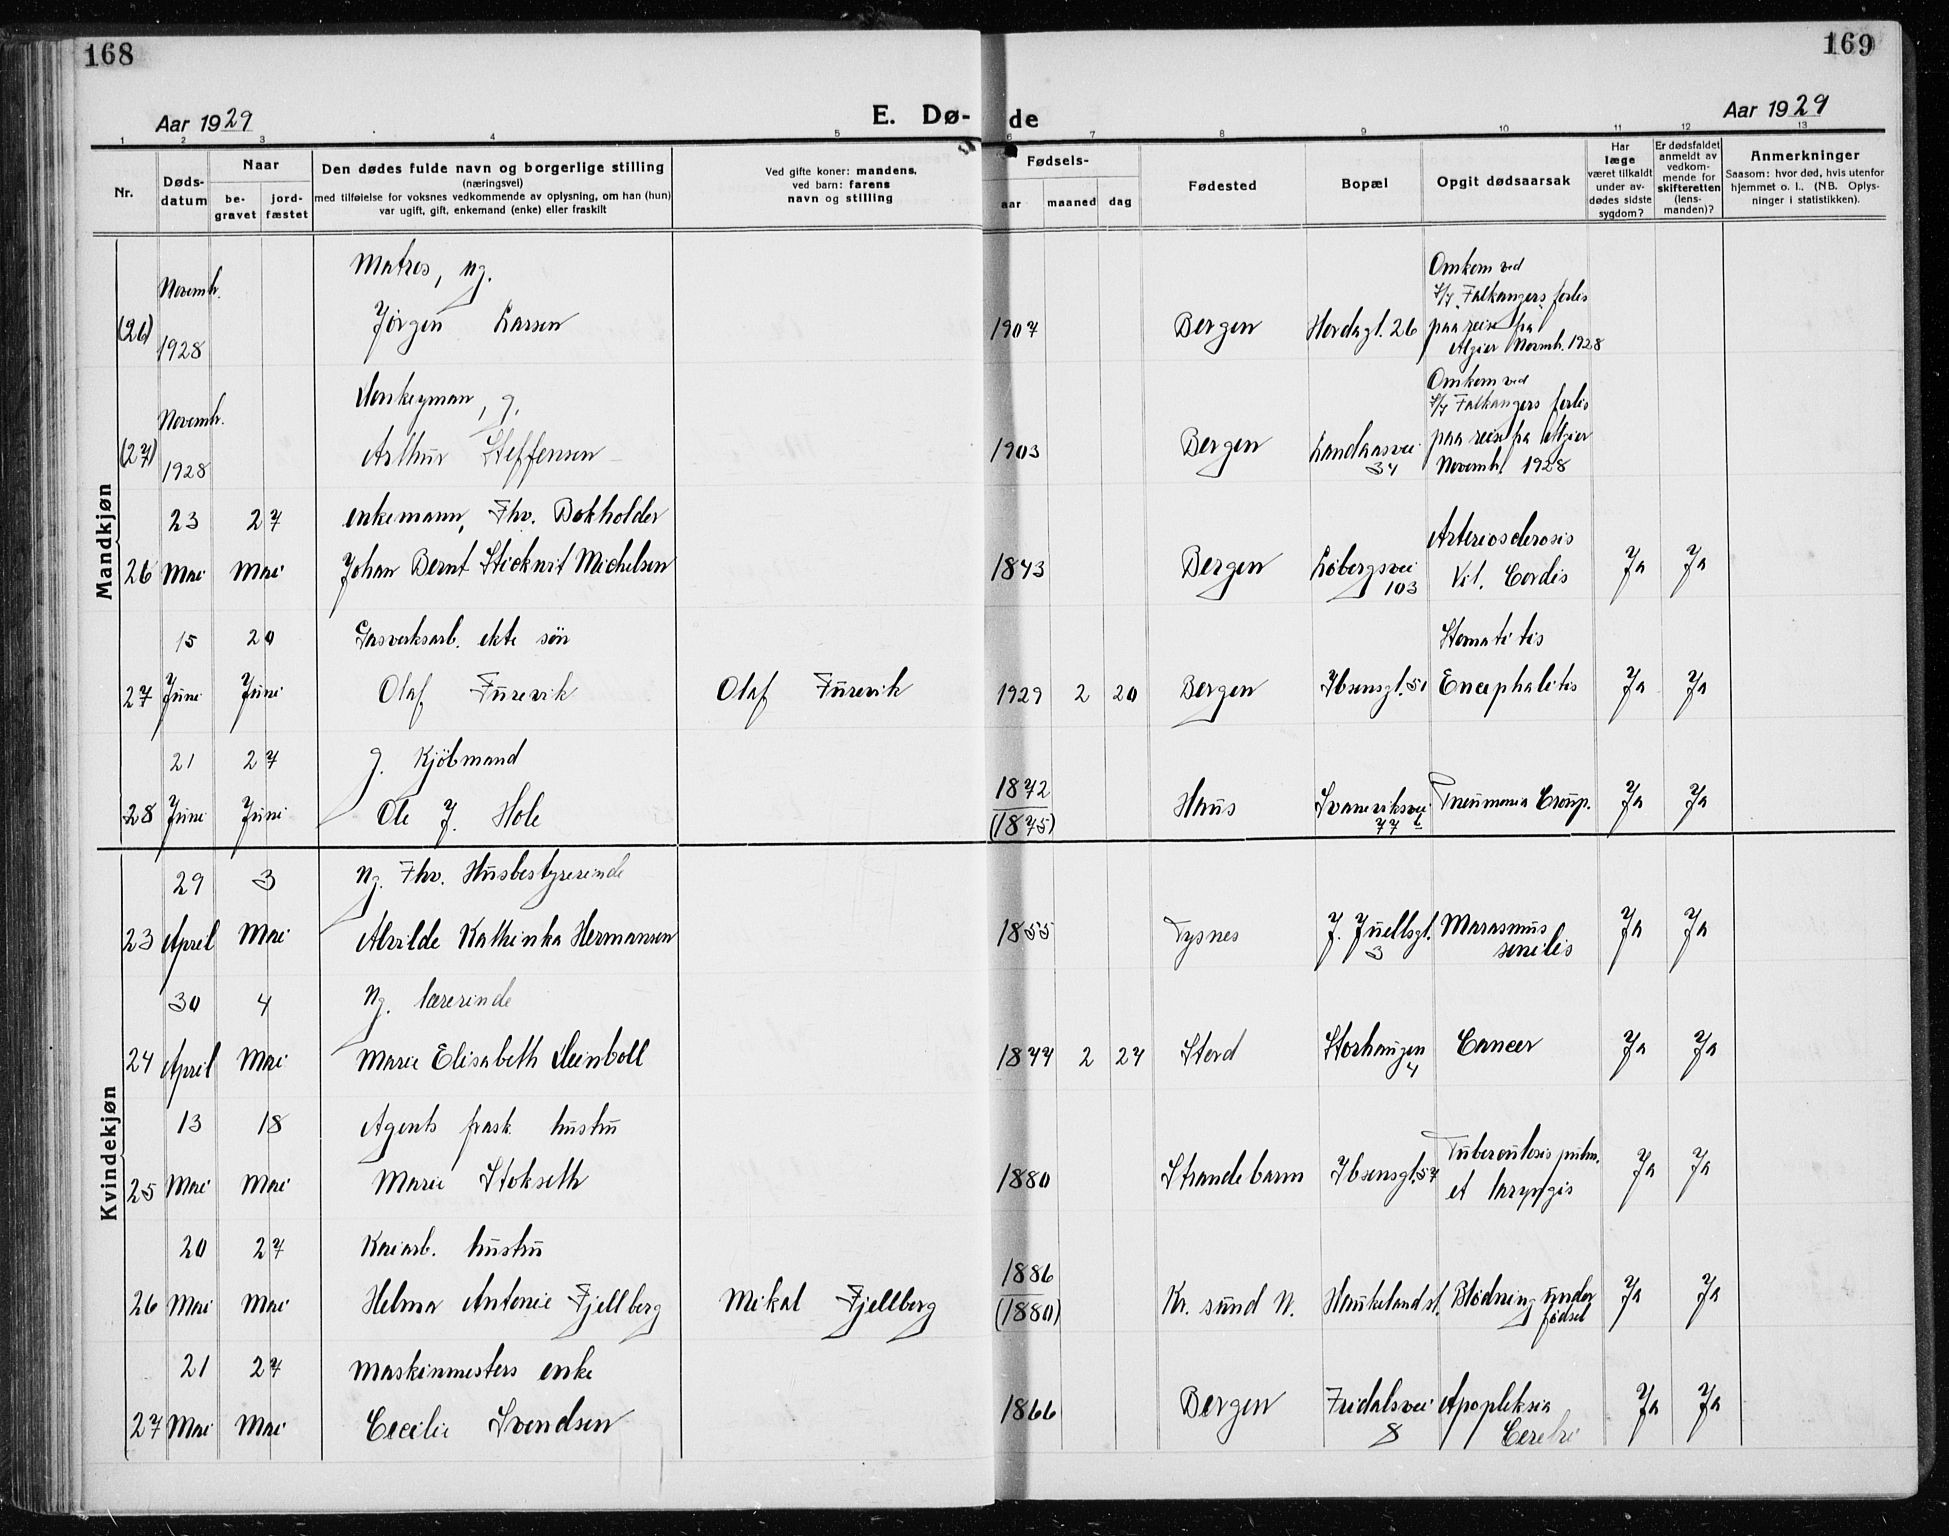 168
169
Aar 1929
E. Dø-
de
Aar 1929
1 2 3 4 5 6 7 8 9 10 11 12 13
Nr.
Døds-
datum
Naar
be-
gravet
jord-
fæstet
Den dødes fulde navn og borgerlige stilling
(næringsvei)
med tilføielse for voksnes vedkommende av oplysning, om han (hun)
var ugift, gift, enkemand (enke) eller fraskilt
Ved gifte koner: mandens,
ved barn: farens
navn og stilling
Fødsels-
aar
maaned
dag
Fødested
Bopæl
Opgit dødsaarsak
Har
læge
været tilkaldt
under av-
dødes sidste
sygdom?
Er dødsfaldet
anmeldt av
vedkom-
mende for
skifteretten
(lens-
manden)?
Anmerkninger
Saasom: hvor død, hvis utenfor
hjemmet o. l., (NB. Oplys-
ninger i statistikken).
Mandkjøn
(26)
Novembr.
1928
Matros, ug.
Jörgen Larsen
1907
Bergen
Hordagt. 26
Omkom ved
"Falkangers" forlis
paa reise fra
Algier Novmbr. 1928
(27)
Novembr.
1928
Donkeyman, g.
Arthur Steffensen
1903
Bergen
Landaasvei
34
Omkom ved
Falkangers forlis
paa reise fra Algier
Novembr. 1928
26
23
Mai
27
Mai
enkemann, Fhv. Bokholder
Johan Bernt Sticknit Michelsen
1843
Bergen
Löbergsvei
103
Arteriosclerosis
Vit. Cordis
Ja
Ja
27
15
Juni
20
Juni
Gasverksarb. ekte sön
Olaf Furevik
Olaf Furevik
1929 2 20
Bergen
Ibsensgt. 51
Stomatitis
Encephalitis
Ja
Ja
28
21
Juni
27
Juni
g. Kjöbmand
Ole J. Hole
1872
(1875)
Haus
Svaneviksvei
77 b
Pneumonia Croup.
Ja
Ja
Kvindekjøn
23
29
April
3
Mai
Ug. Fhv. Husbestyrerinde
Alvilde Kathinka Hermansen
1855
Tysnes
J. Juellsgt.
3
Marasmus
senilis
Ja
Ja
24
30
April
4
Mai
Ug. lærerinde
Marie Elisabeth Deinboll
1877 2 27
Stord
Storhaugen
4
Cancer
Ja
Ja
25
13
Mai
18
Mai
Agents frask. hustru
Marie Stokseth
1880
Strandebarm
Ibsensgt. 57
Tuberculosis pulm.
et laryngis
Ja
Ja
26
20
Mai
27
Mai
Kaiarb. hustru
Helma Antonie Fjellberg
Mikal Fjellberg
1886
(1880)
Kr. sund N.
Haukeland st.
Blödning under
födsel
Ja
Ja
27
21
Mai
27
Mai
Maskinmesters enke
Cecilie Svendsen
1866
Bergen
Fridalsvei
8
Apopleksia
Cerebri
Ja
Ja